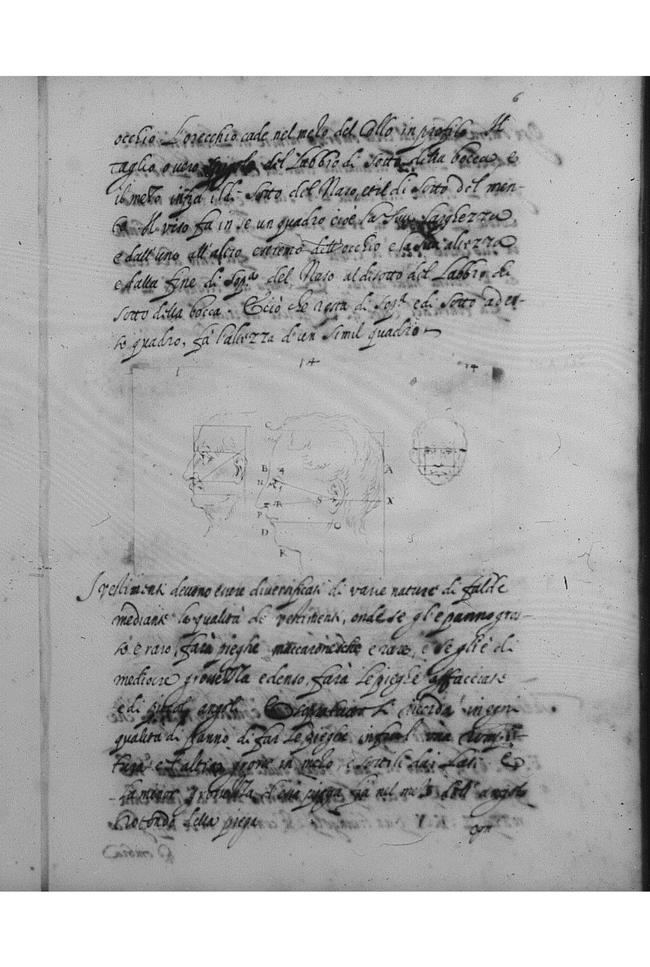 6
occhio L'orecchio cade nel mezo del Collo in profilo Il
Taglio o vero del Labbro di sotto della bocca, e
il mezo infra il di sotto del Naso, et il di sotto del men-
to Il viso fa in se un quadro cioè la sua larghezza
e dall'uno all'altro extremo dell'occhio e la sua altezza
e dalla fine di sop.ª del Naso al disotto del Labbro di
sotto della bocca. E ciò che resta di sop.ª e di sotto a det-
to quadro, fà l'altezza d'un simil quadro
14
B A
N
S X
P
D O
K
I vestimenti devono essere diversificati di varie nature di falde
mediante la qualità de vestimenti, onde se gl'è panno gros-
so e raro, farà pieghe maccaronesche e rare, e se gl'è di
mediocre grossezza e denso, farà le pieghe affacciate
e di angoli ricorda in ogni
qualità di Panno di far le pieghe infra l'una
e l'altra grosse in mezo e sottili dai lati E
la minor grossezza d'essa piega sia nel mezo dell'angolo
Rotondo della piega
ogn